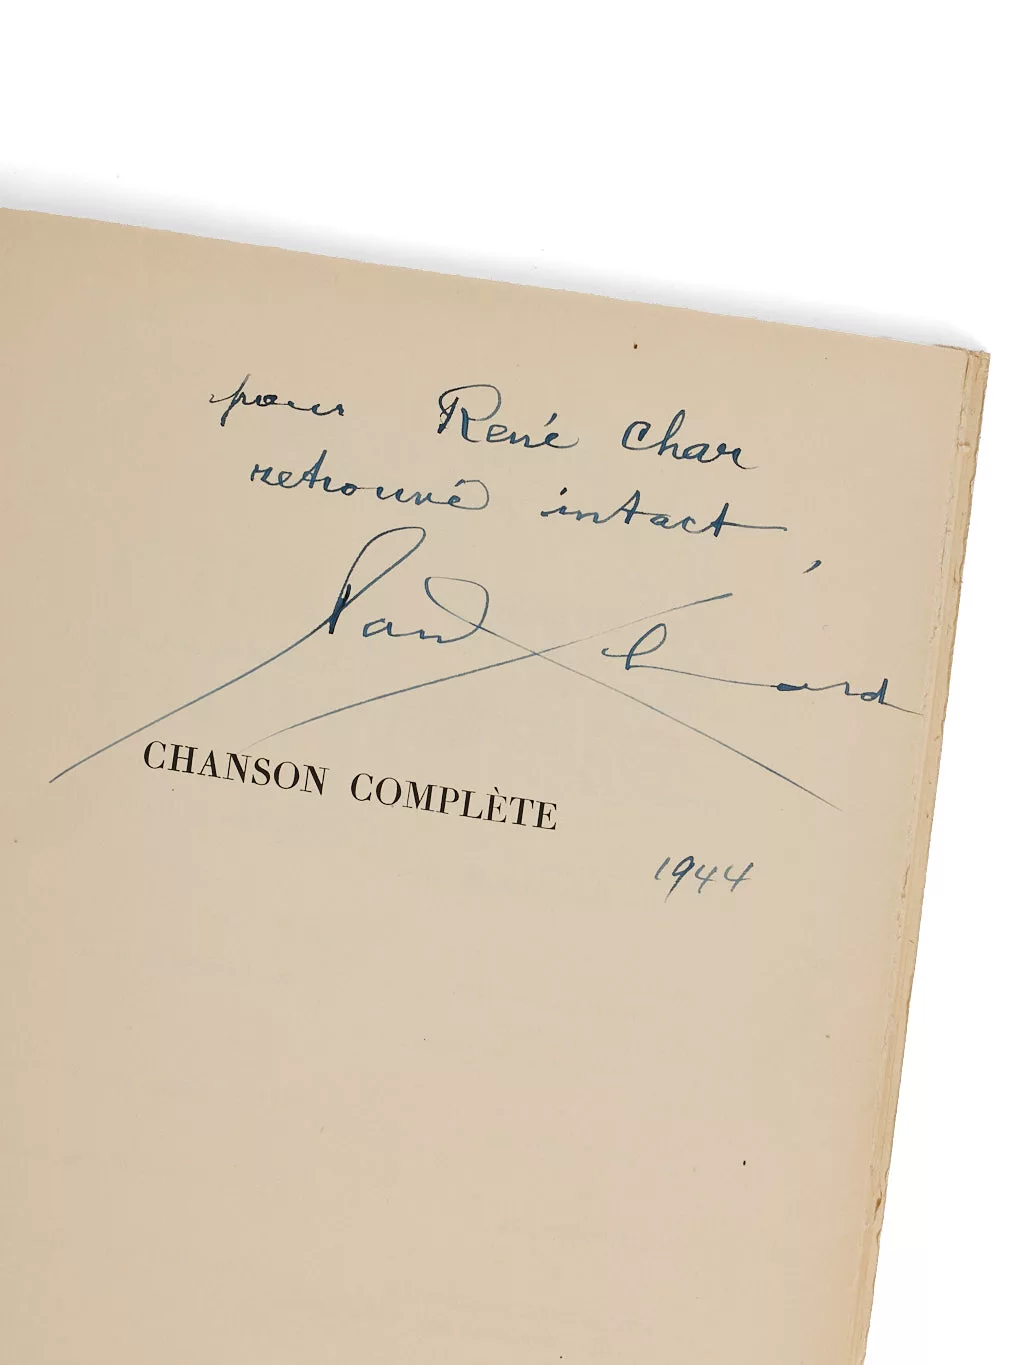 pour René Char
retrouvé intact,
Paul Eluard
CHANSON COMPLÈTE
1944